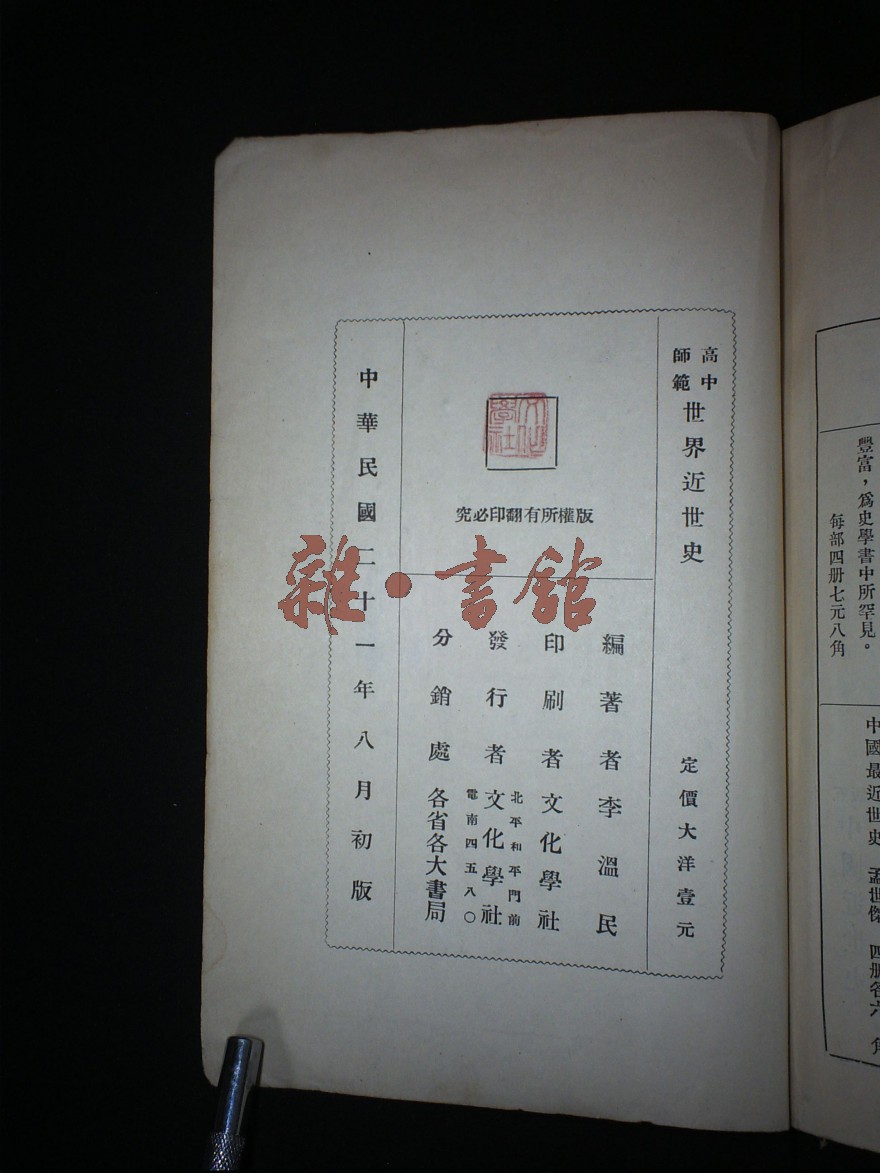 高中
師範
世界近世史
定價大洋壹元
文化
學社
版權所有翻印必究
編著者李溫民
印刷者文化學社
北平和平門前
發行者文化學社
電南四五八〇
分銷處各省各大書局
中華民國二十一年八月初版
雜·書館
豐富，爲史學書中所罕見。
每部四册七元八角
中國最近世史 孟世傑 四册各六 角